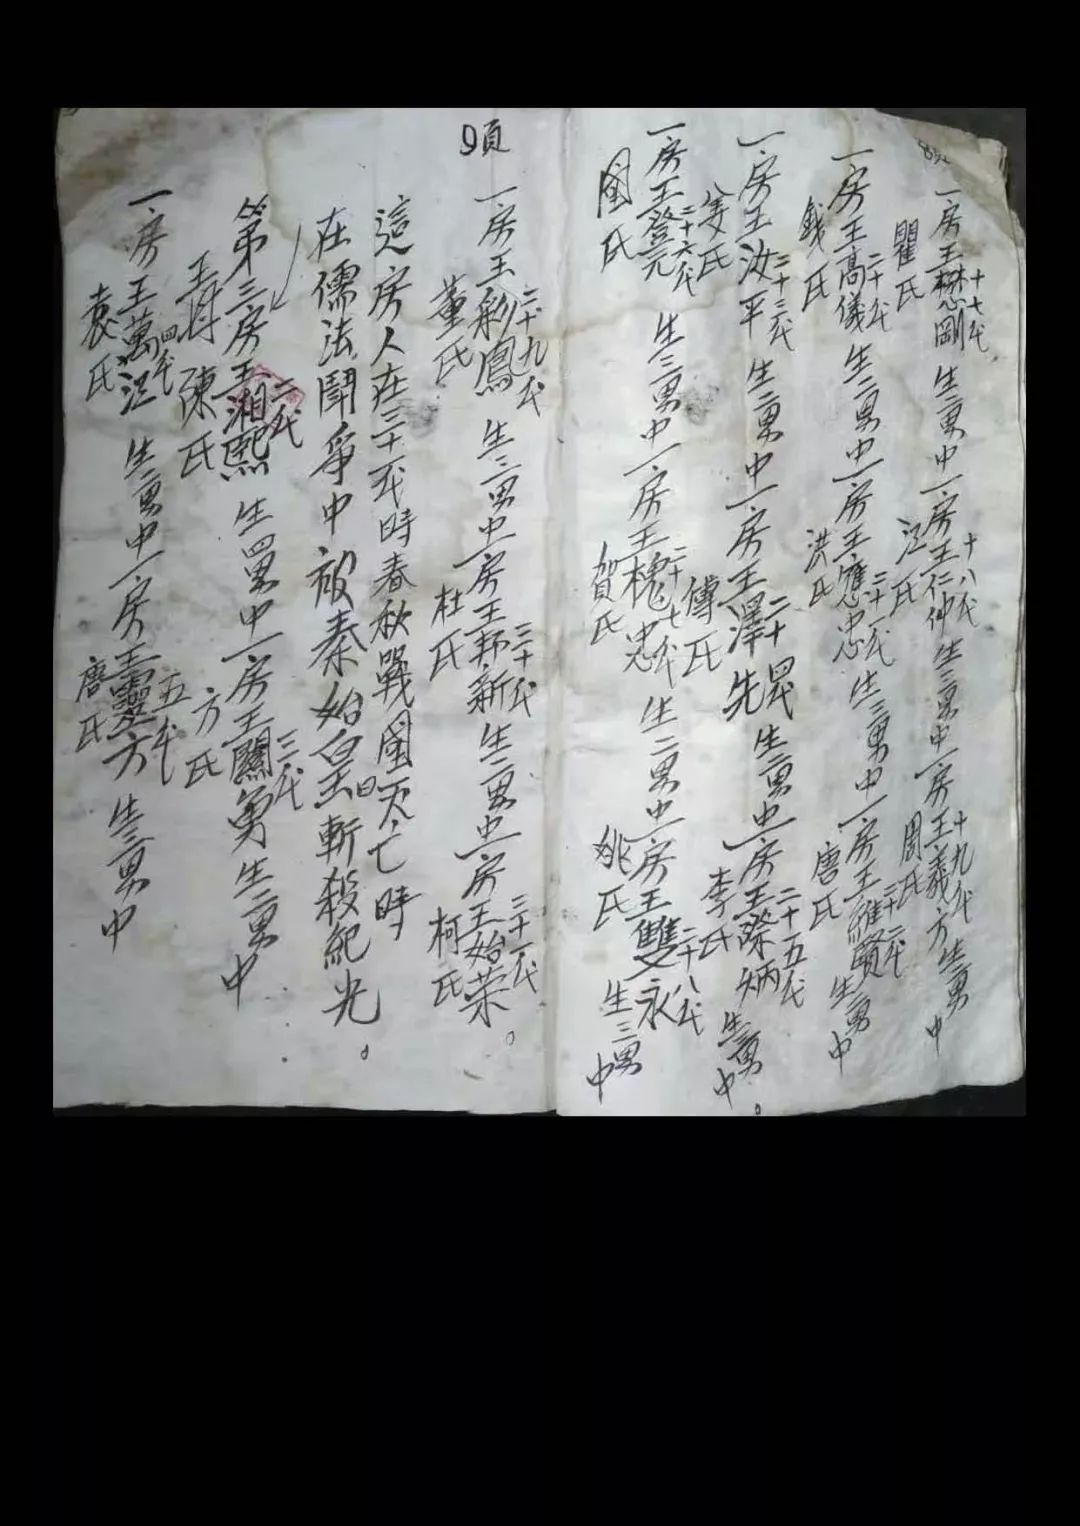 8頁
一房王懋剛 十七代 瞿氏 生二男中一房王仁仲 十八代 江氏 生三男中一房王義方 十九代 周氏 生二男中
一房王高儀 二十代 錢氏 生二男中一房王應忠 二十一代 洪氏 生三男中一房王維賢 二十二代 唐氏 生二男中
一房王汝平 二十三代 姜氏 生二男中一房王澤先 二十四代 傅氏 生二男中一房王際炳 二十五代 李氏 生二男中。
一房王登元 二十六代 國氏 生三男中一房王槐忠 二十七代 賀氏 生二男中一房王雙永 二十八代 姚氏 生三男中
9頁
一房王彩鳳 二十九代 董氏 生二男中一房王邦新 三十代 杜氏 生二男中一房王始荣 三十一代 柯氏。
這房人在三十一代時春秋戰國灭亡時
在儒法鬪爭中被秦始皇斬殺紀光。
第三房王湘熙 二代 陳氏 生四男中一房王闖勇 三代 方氏 生二男中
一房王萬江 四代 袁氏 生二男中一房王靈方 五代 唐氏 生三男中